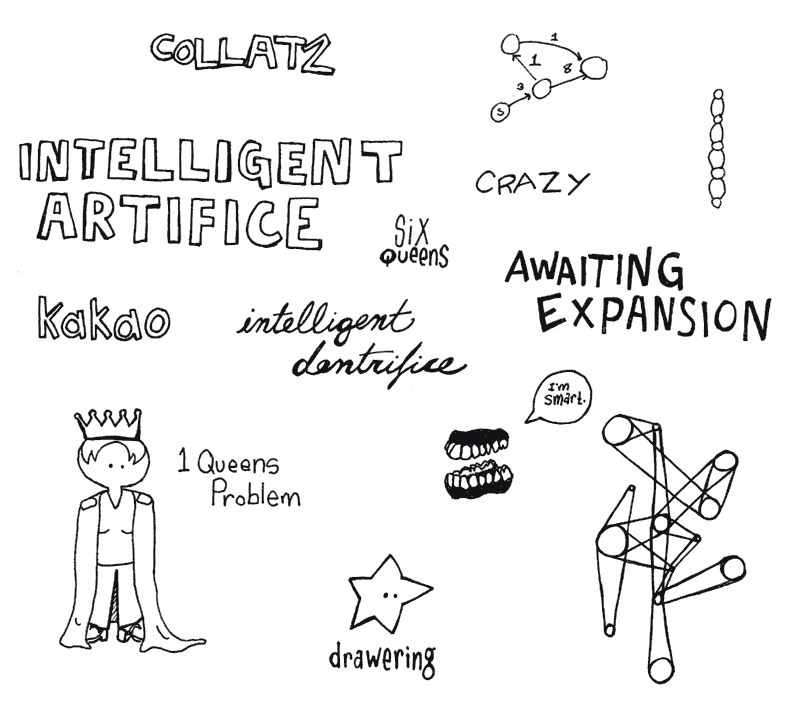 COLLATZ
1
1
8
3
S
INTELLIGENT
ARTIFICE
CRAZY
SiX
QueenS
AWAITING
EXPANSION
kakao
intelligent
dentrifice
I'm
smart.
1 Queens
Problem
drawering